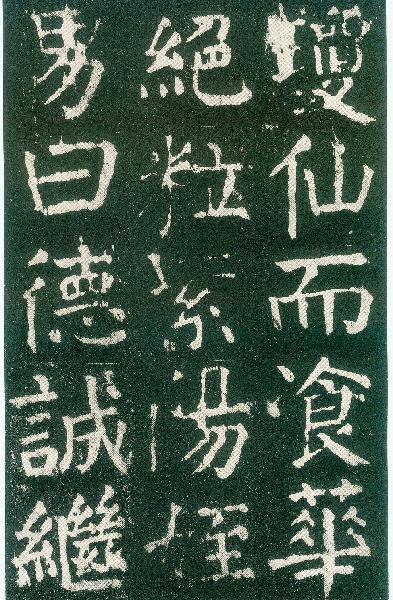 瓊仙而飡華
絕粒紫陽姪
男曰德誠繼